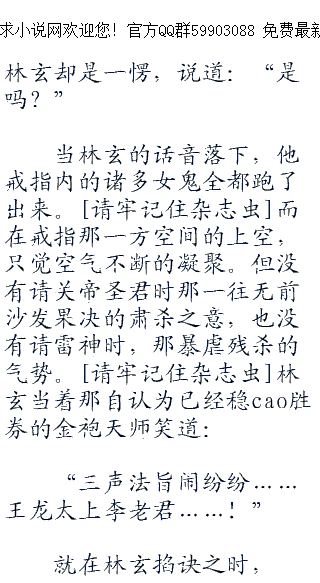 求小说网欢迎您！官方QQ群59903088 免费最新
林玄却是一愣，说道：“是
吗？”
当林玄的话音落下，他
戒指内的诸多女鬼全都跑了
出来。[请牢记住杂志虫]而
在戒指那一方空间的上空，
只觉空气不断的凝聚。但没
有请关帝圣君时那一往无前
沙发果决的肃杀之意，也没
有请雷神时，那暴虐残杀的
气势。[请牢记住杂志虫]林
玄当着那自认为已经稳cao胜
券的金袍天师笑道：
“三声法旨闹纷纷……
王龙太上李老君……！”
就在林玄掐诀之时，